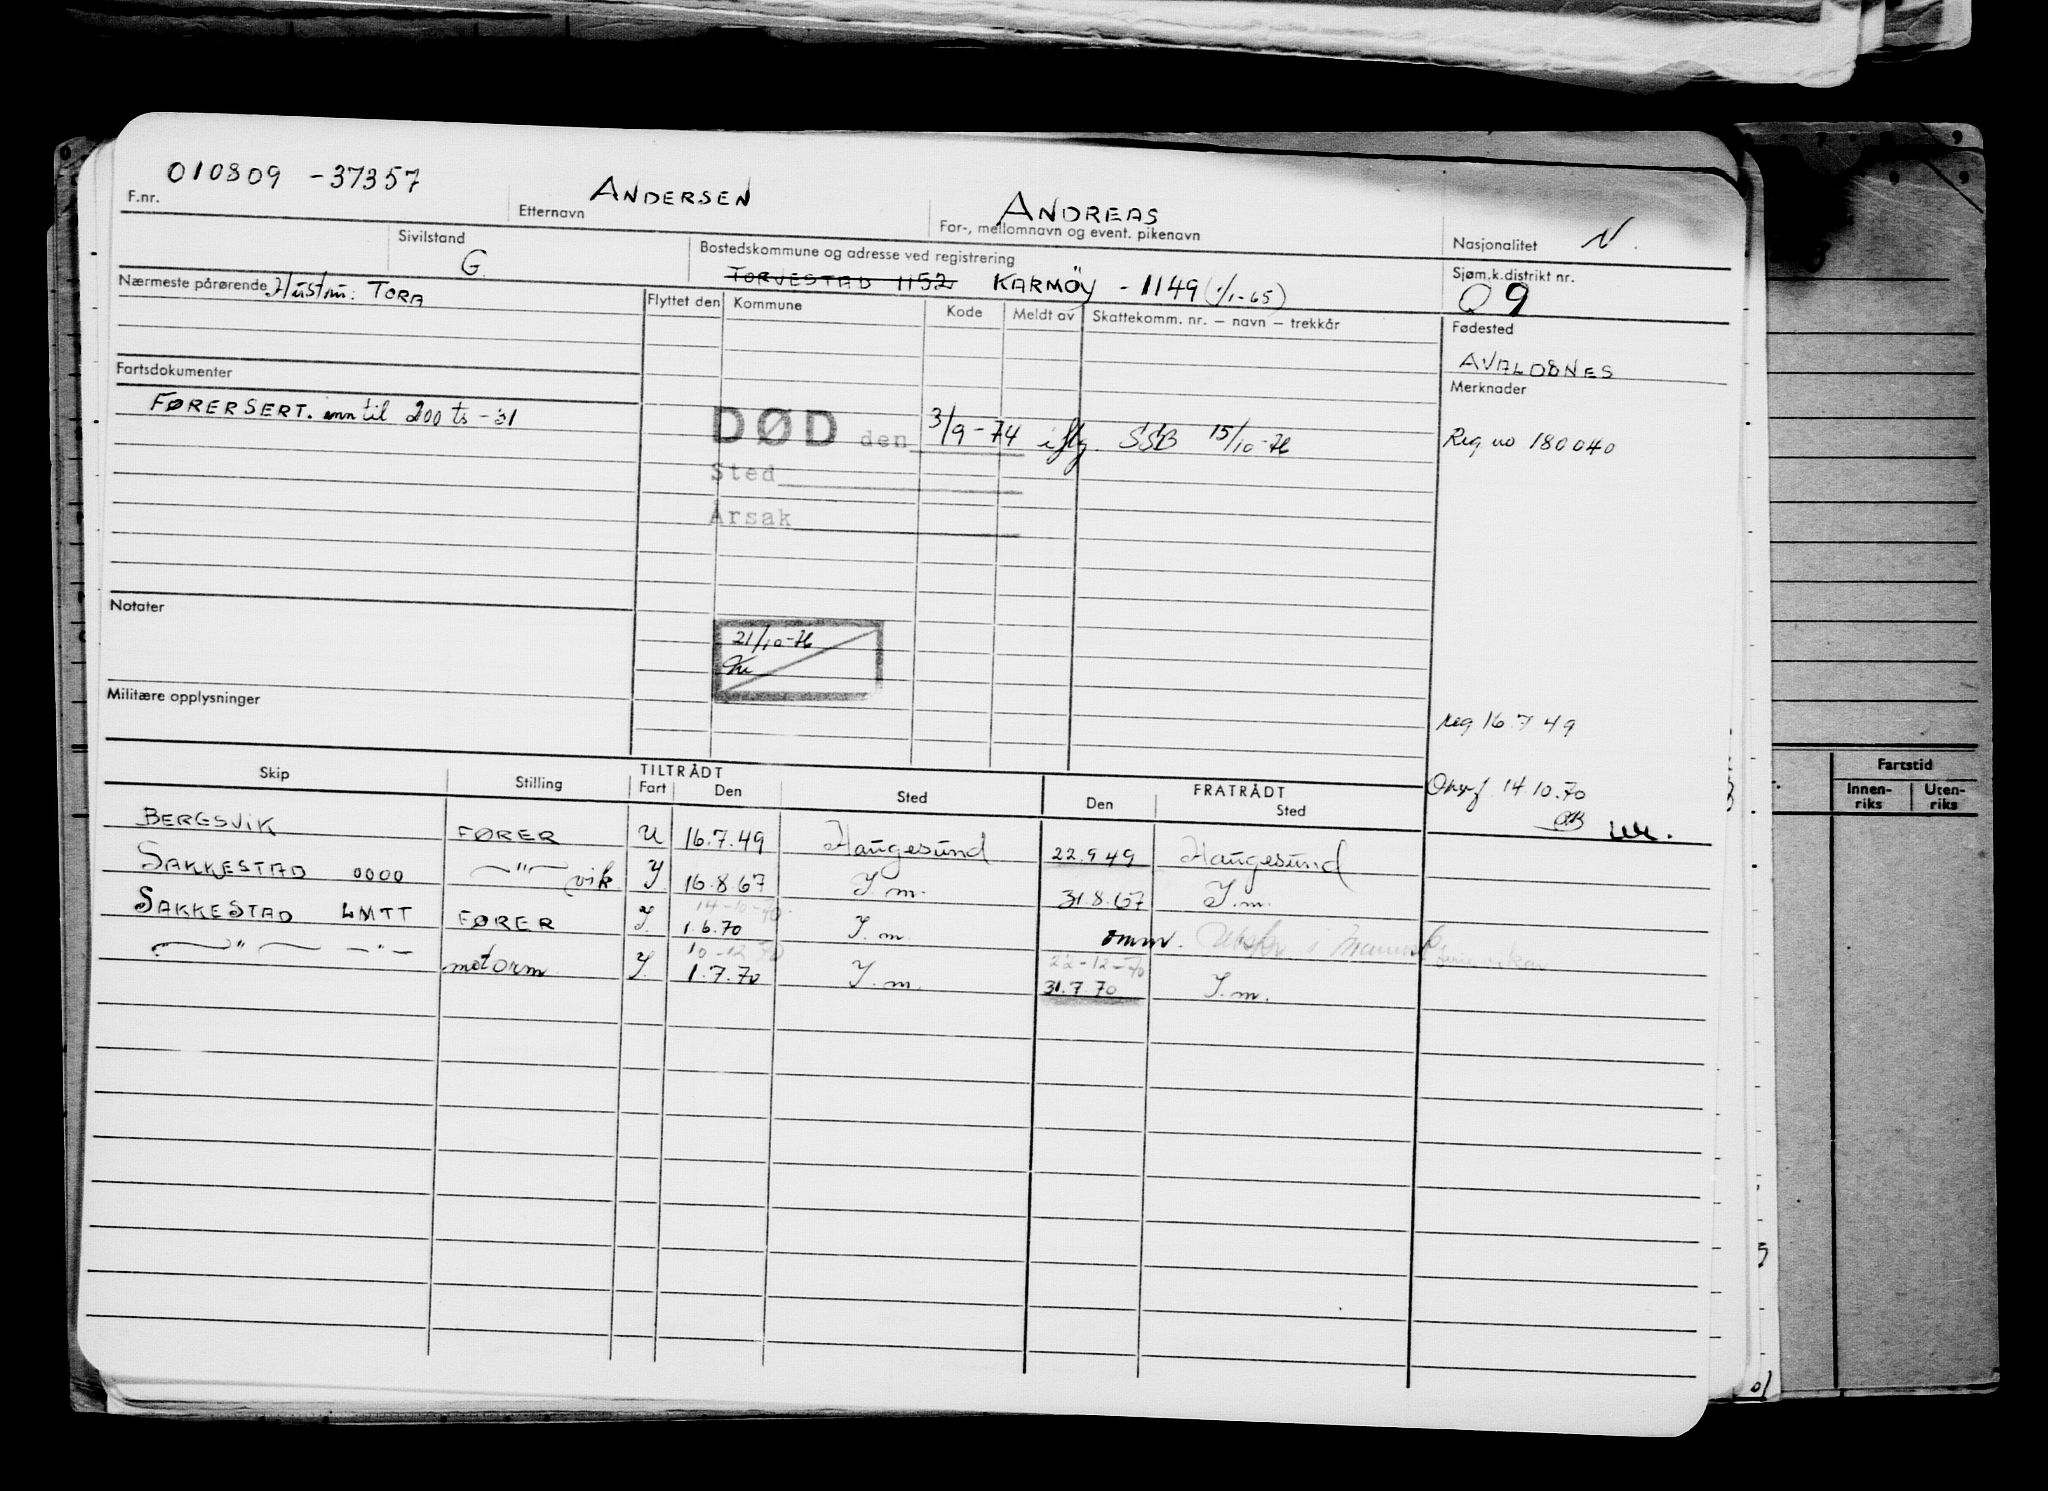 010809 - 37357 ANDERSEN ANDREAS
F.nr. Etternavn For-, mellomnavn og event. pikenavn Nasjonalitet N.
Sivilstand G. Bostedskommune og adresse ved registrering Sjøm.k.distrikt nr.
TORVESTAD 1152 KARMÖY - 1149 (1/1-65) 09
Nærmeste pårørende Hustru: TORA Flyttet den Kommune Kode Meldt av Skattekomm. nr. – navn – trekkår Fødested
AVALDSNES
Fartsdokumenter Merknader
FØRERSERT. inntil 200 ts - 31 DØD den 3/9-74 iflg. SSB 15/10-76 Reg no 180040
Sted
Årsak
Notater
21/10-76
Militære opplysninger
reg 16.7 49
Skip Stilling TILTRÅDT Fart Den Sted FRATRÅDT Den Sted
14.10.70
BERGSVIK FØRER U 16.7.49 Haugesund 22.9 49 Haugesund
SAKKESTAD 0000 —"— vik Y. 16.8.67 I.m. 31.8.67 I.m.
14-10-70
SAKKESTAD LMTT FØRER Y. 1.6.70 I.m. omm.
10-12-70 22-12-70
—"— —"— motorm Y. 1.7.70 I.m. 31.7.70 I.m.
Fartstid
Innen-riks Uten-riks